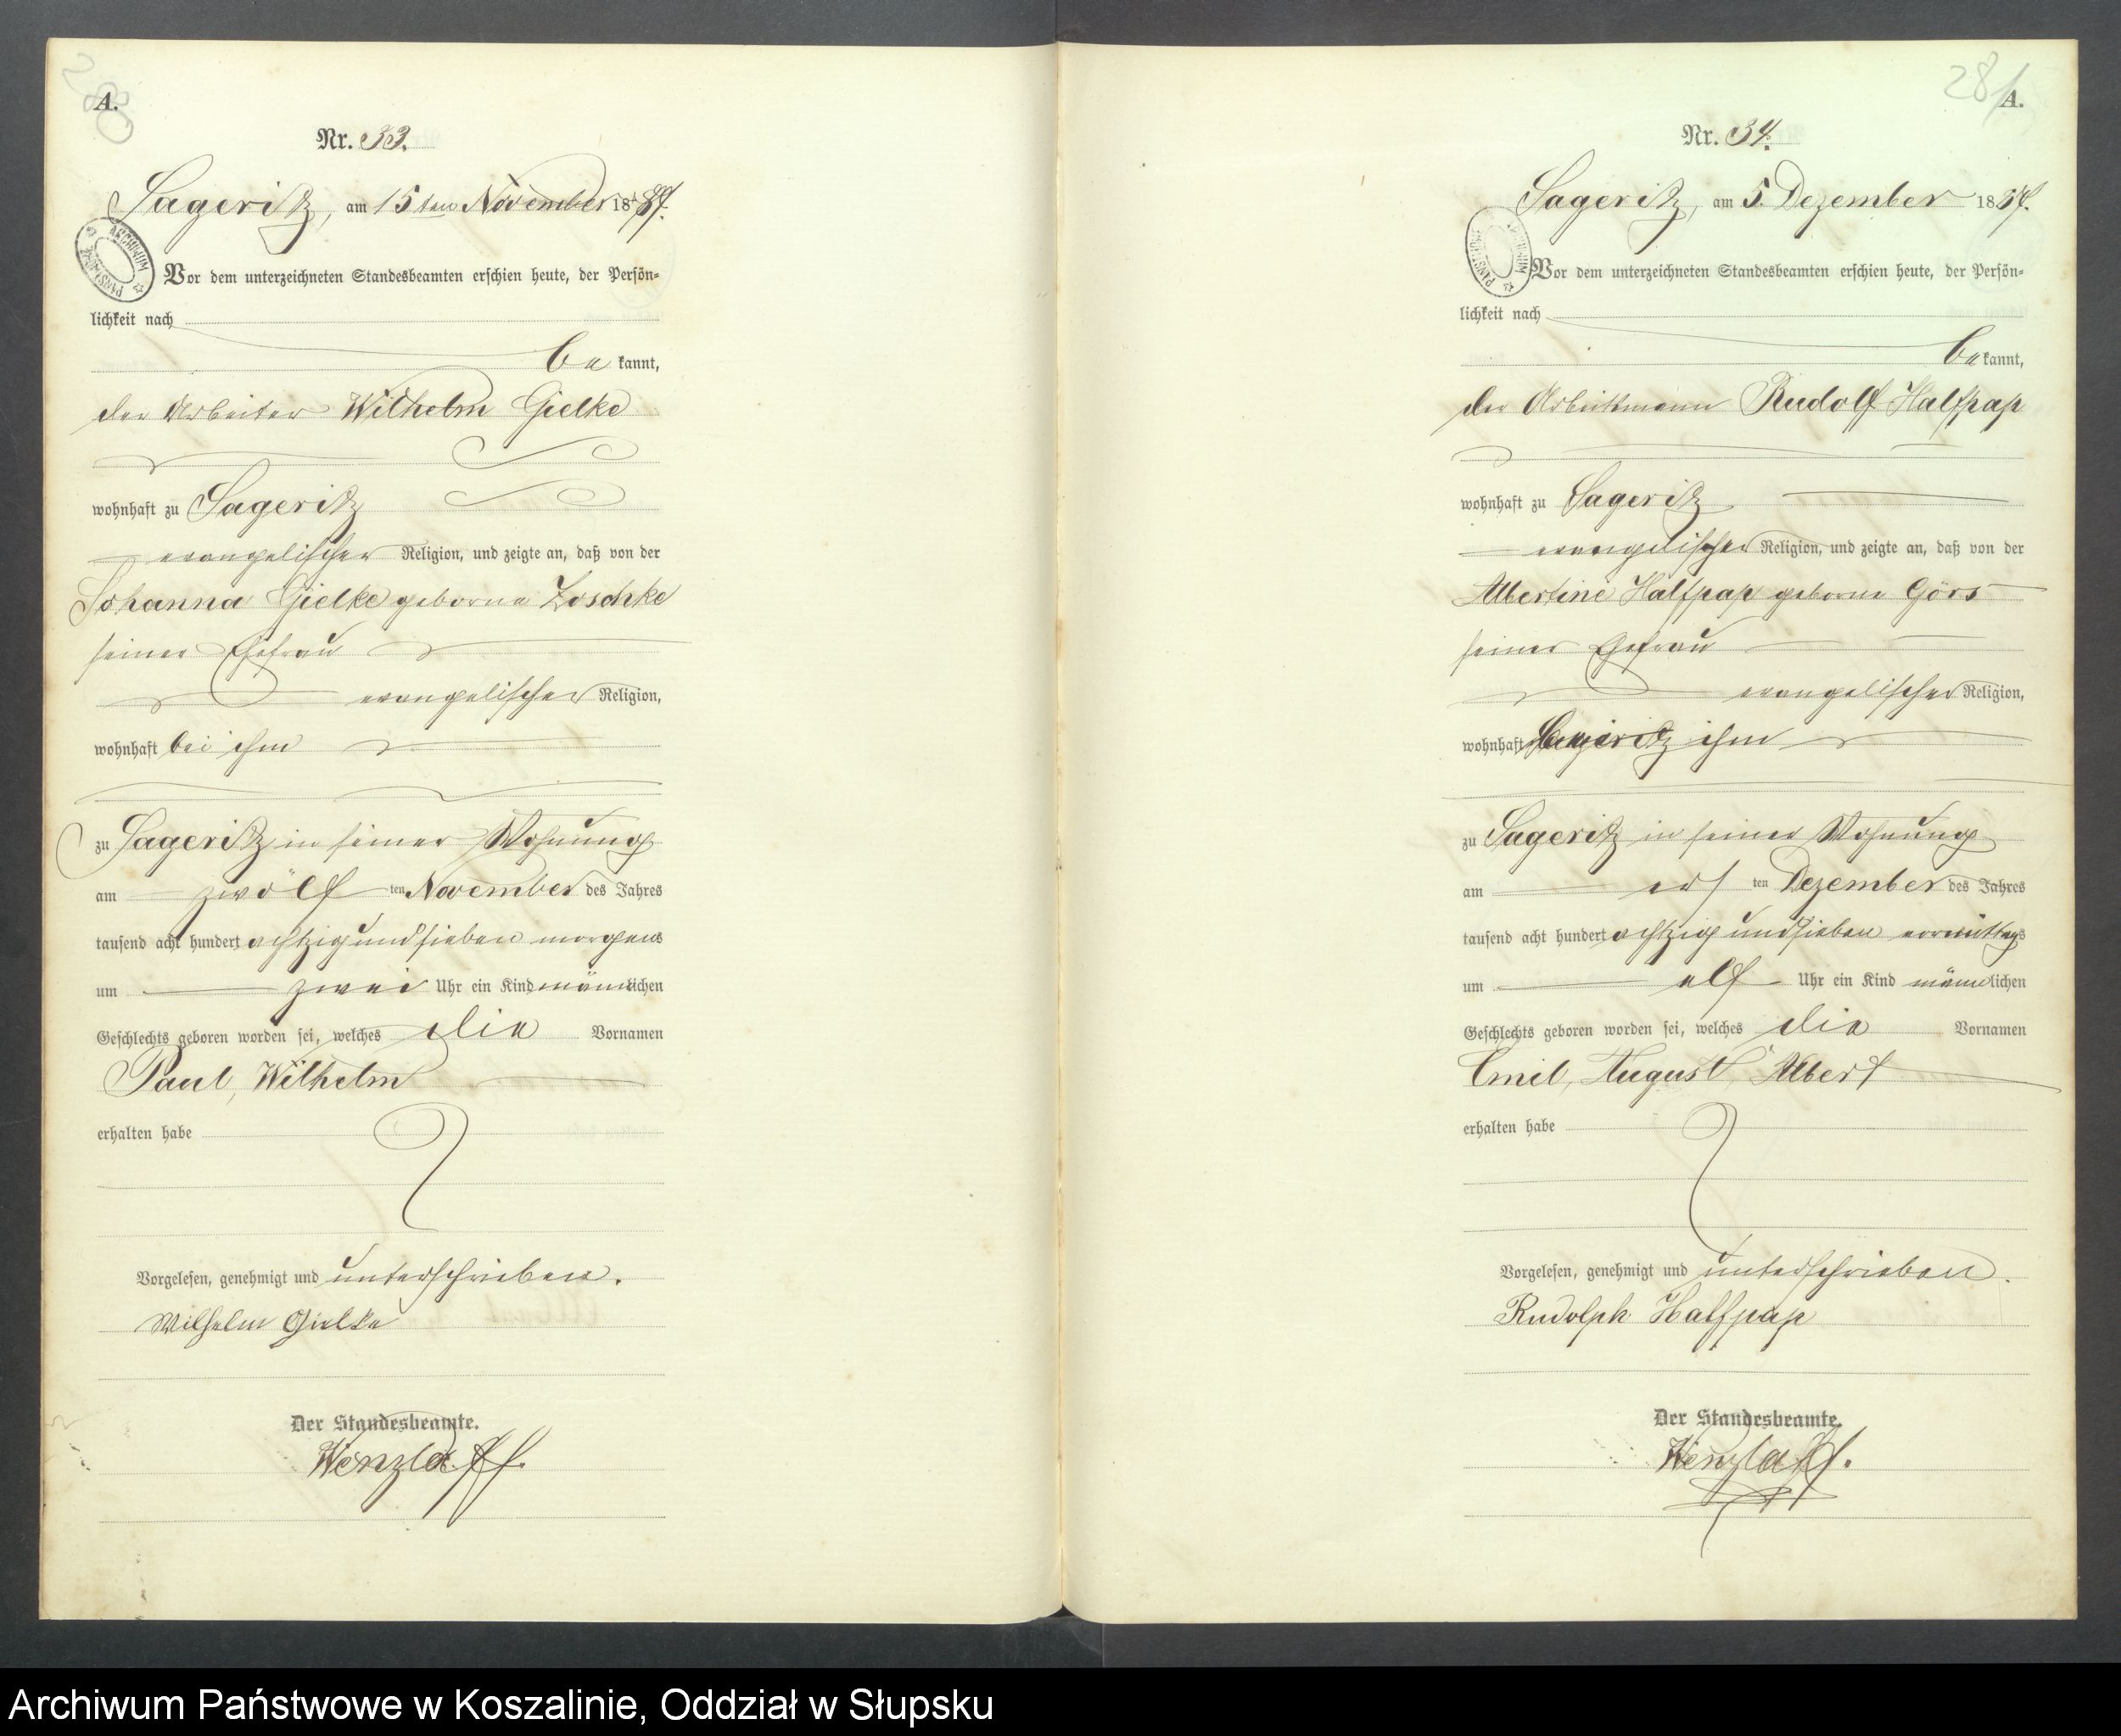 280
A.
Nr. 33.
Sageritz, am 15ten November 1887.
Vor dem unterzeichneten Standesbeamten erschien heute, der Persön-
lichkeit nach
be kannt,
der Arbeiter Wilhelm Gielke
wohnhaft zu Sageritz
evangelischer Religion, und zeigte an, daß von der
Johanna Gielke geborne Zoschke
seiner Ehefrau
evangelischer Religion,
wohnhaft bei ihm
zu Sageritz in seiner Wohnung
am zwölf ten November des Jahres
tausend acht hundert achtzig und sieben morgens
um zwei Uhr ein Kind männlichen
Geschlechts geboren worden sei, welches die Vornamen
Paul, Wilhelm
erhalten habe
Vorgelesen, genehmigt und unterschrieben.
Wilhelm Gielke
Der Standesbeamte.
Wenzlaff.
281
A.
Nr. 34.
Sageritz, am 5. Dezember 1887.
Vor dem unterzeichneten Standesbeamten erschien heute, der Persön-
lichkeit nach
be kannt,
der Arbeitmann Rudolf Halfpap
wohnhaft zu Sageritz
evangelischer Religion, und zeigte an, daß von der
Albertine Halfpap geborne Görs
seiner Ehefrau
evangelischer Religion,
wohnhaft ihm
zu Sageritz in seiner Wohnung
am erst ten Dezember des Jahres
tausend acht hundert achtzig und sieben vormittags
um elf Uhr ein Kind männlichen
Geschlechts geboren worden sei, welches die Vornamen
Emil, August, Albert
erhalten habe
Vorgelesen, genehmigt und unterschrieben.
Rudolph Halfpap
Der Standesbeamte.
Wenzlaff.
Archiwum Państwowe w Koszalinie, Oddział w Słupsku